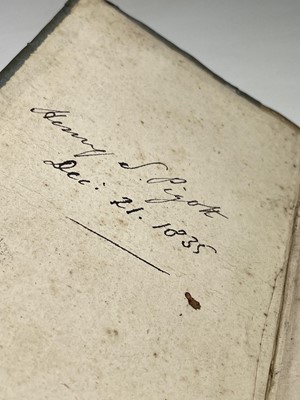 Henry S. Pigott
Dec. 21. 1835